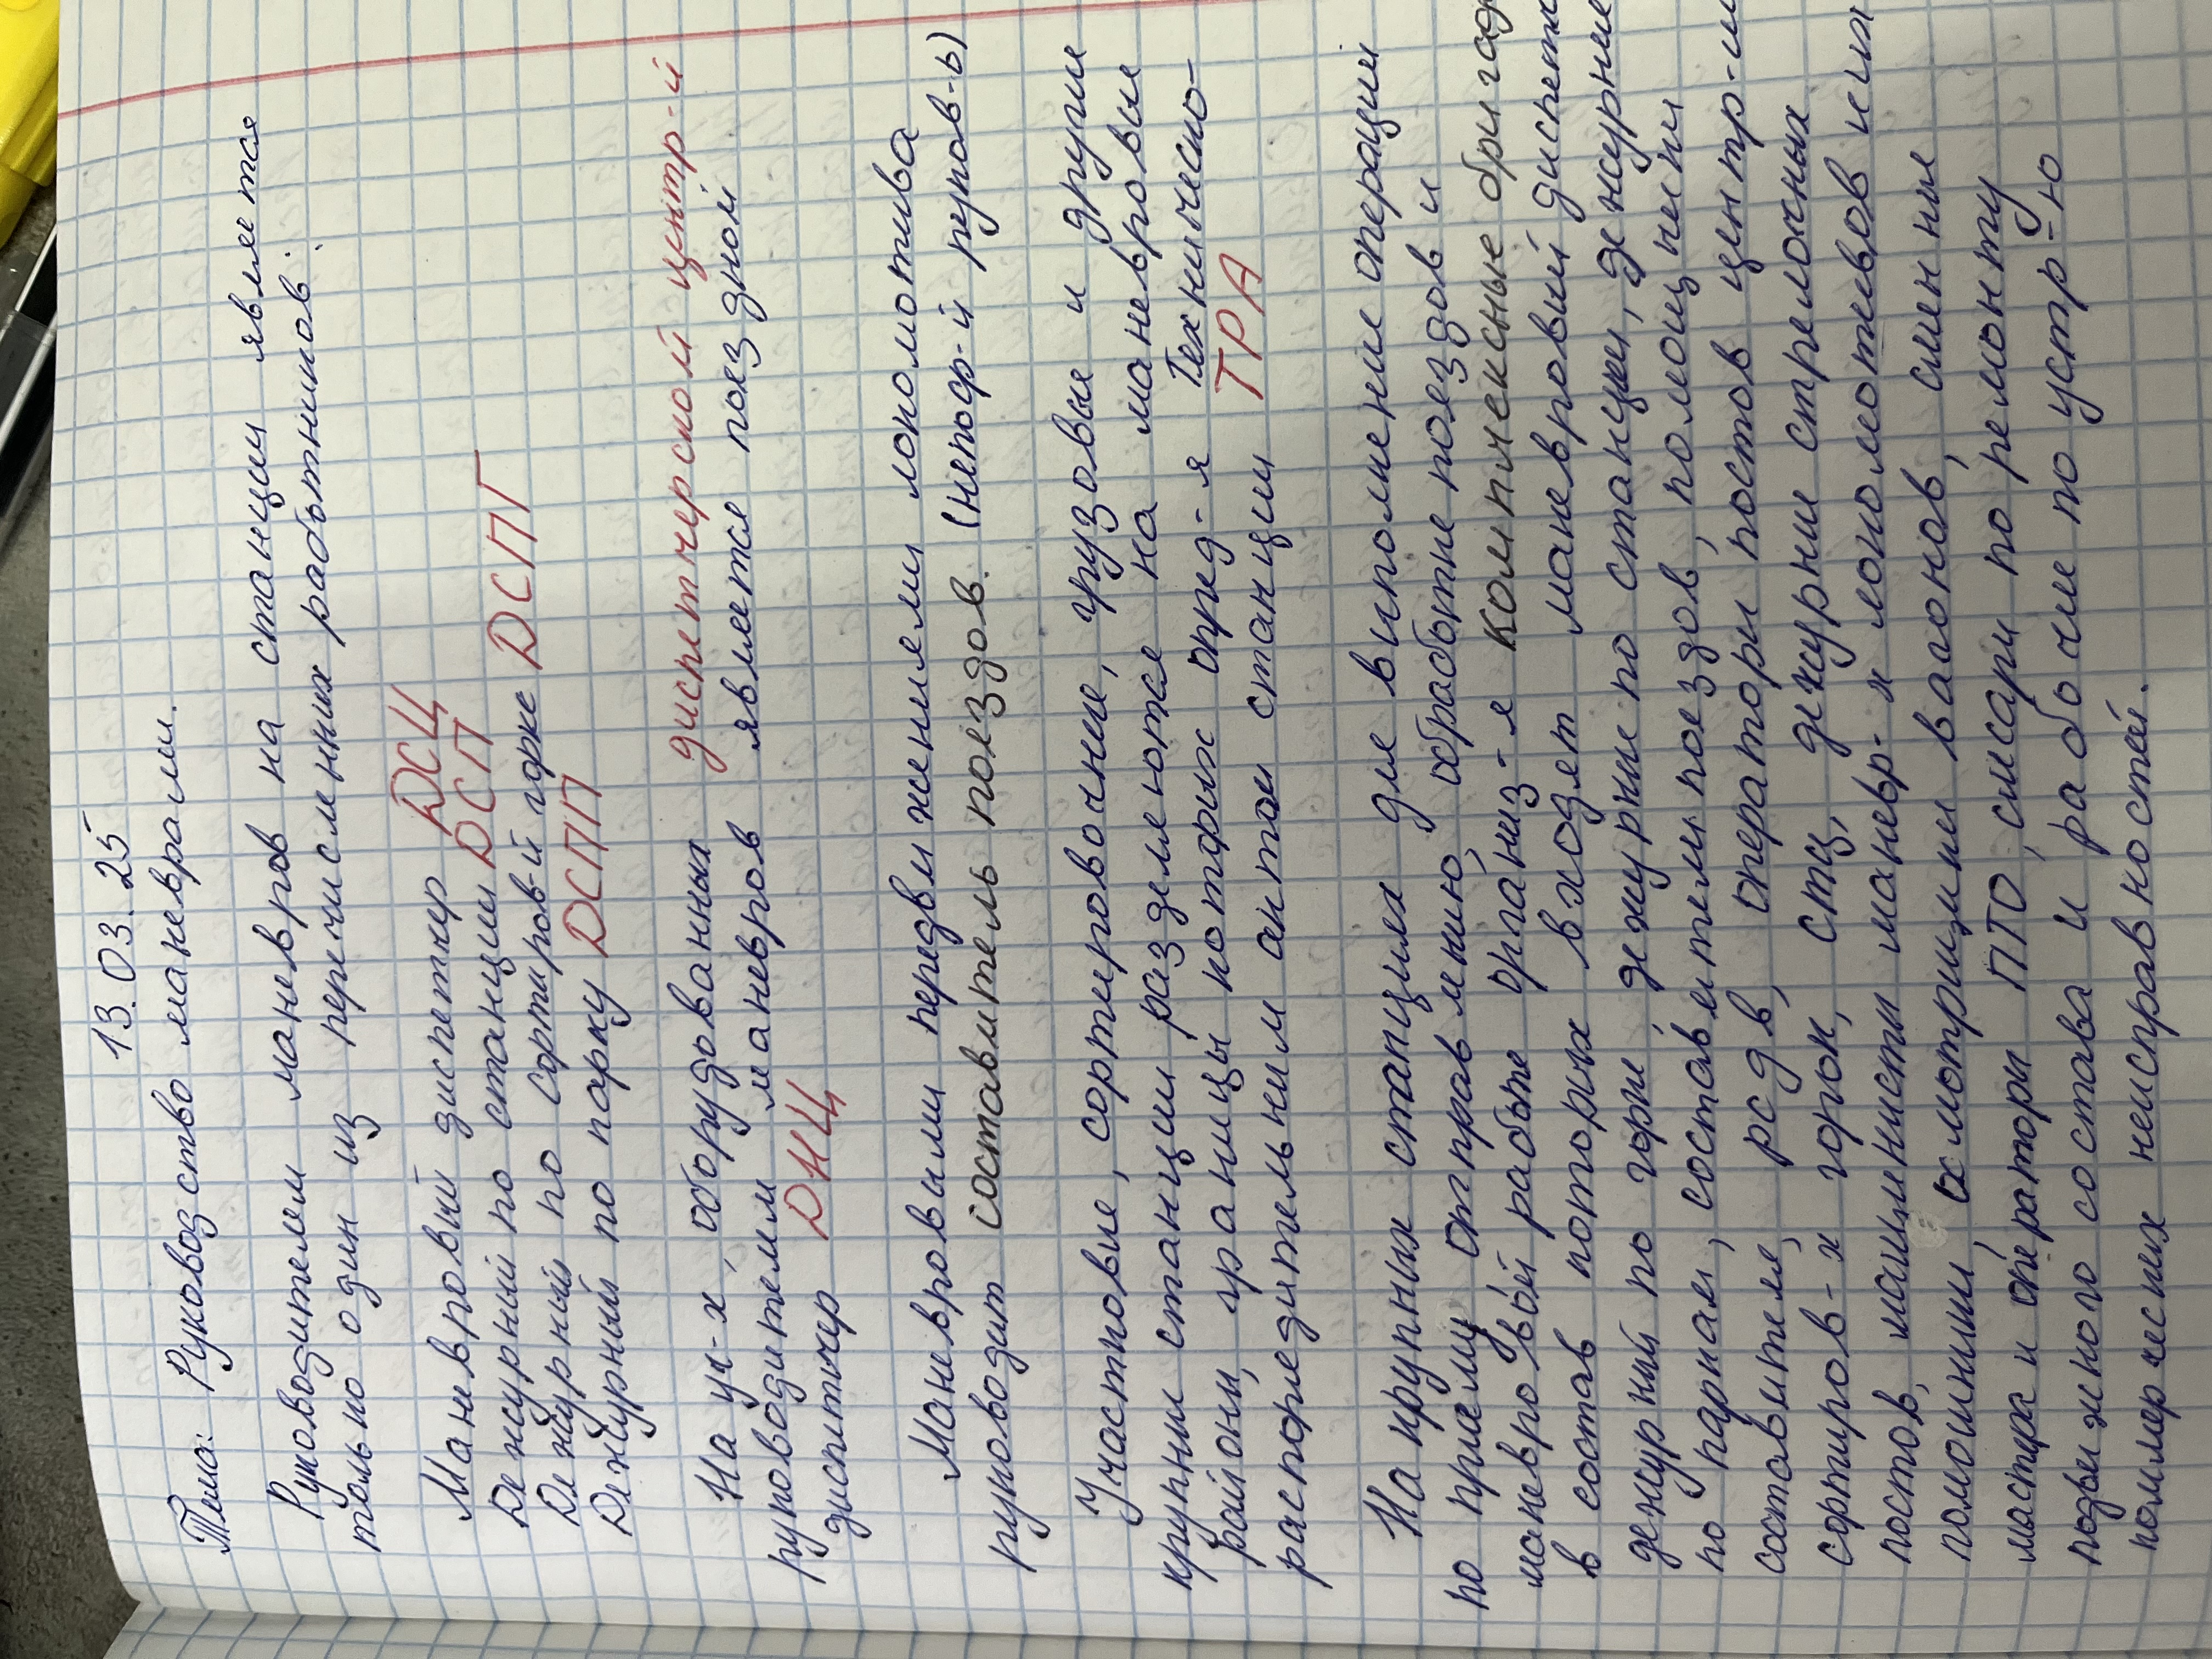 13. 03. 25
Тема: Руководство маневрами.
Руководителем маневров на станции является
только один из перечисленных работников:
Маневровый диспетчер ДСЦ
Дежурный по станции ДСП
Дежурный по сортиров-й горке ДСПГ
Дежурный по парку ДСПП
На уч-х, оборудованных диспетчерской центр-й
руководителем маневров является поездной
диспетчер ДНЦ
Маневровыми передвижениями локомотива
руководит составитель поездов. (непоср-й руков-ь)
Участковые, сортировочные, грузовые и другие
крупные станции разделяются на маневровые
районы, границы которых опред-я Техническо-
распорядительным актом станции ТРА
На крупных станциях для выполнение операций
по приему, отправлению, обработке поездов и
маневровый работе организ-я комплексные бригад
в состав которых входят маневровый диспетч
дежурный по горке, дежурные по станции, дежурные
по паркам, составители поездов, помощники
составителя, РСДВ, операторы постов центр-и
сортиров-х горок, СТЦ, дежурные стрелочных
постов, машинисты маневр-х локомотивов и их
помошники, осмотрщики вагонов, сменные
мастера и операторы ПТО, слесари по ремонту
подвижного состава и рабочие по устр-ю
коммерческих неисправностей.